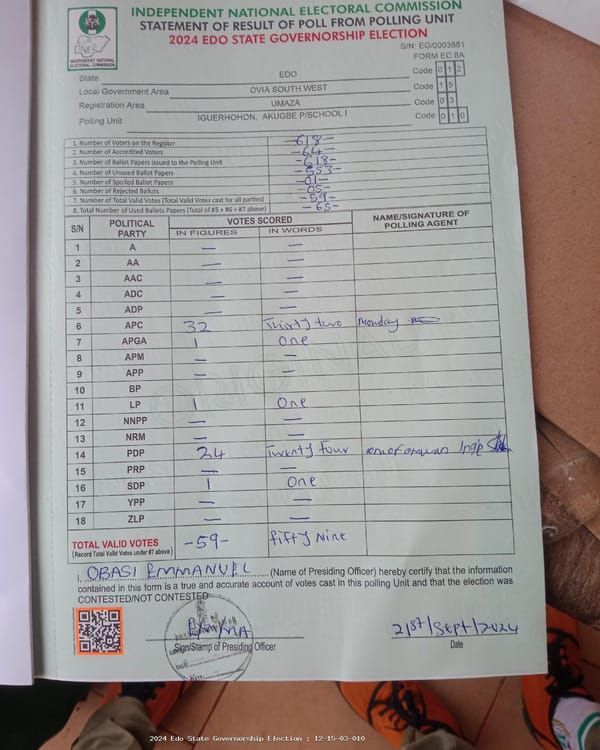 INDEPENDENT NATIONAL ELECTORAL COMMISSION
STATEMENT OF RESULT OF POLL FROM POLLING UNIT
2024 EDO STATE GOVERNORSHIP ELECTION
S/N: EG/0003881
FORM EC 8A
INEC
INDEPENDENT NATIONAL
ELECTORAL COMMISSION
State EDO Code 0 1 2
Local Government Area OVIA SOUTH WEST Code 1 5
Registration Area UMAZA Code 0 3
Polling Unit IGUERHOHON, AKUGBE P/SCHOOL I Code 0 1 0
1. Number of Voters on the Register -618-
2. Number of Accredited Voters -64-
3. Number of Ballot Papers Issued to the Polling Unit -618-
4. Number of Unused Ballot Papers -553-
5. Number of Spoiled Ballot Papers -01-
6. Number of Rejected Ballots -05-
7. Number of Total Valid Votes (Total Valid Votes cast for all parties) -59-
8. Total Number of Used Ballots Papers (Total of #5 + #6 + #7 above) -65-
S/N POLITICAL PARTY VOTES SCORED NAME/SIGNATURE OF POLLING AGENT
IN FIGURES IN WORDS
1 A — —
2 AA — —
3 AAC — —
4 ADC — —
5 ADP — —
6 APC 32 Thirty two Monday
7 APGA 1 One
8 APM — —
9 APP — —
10 BP
11 LP 1 One
12 NNPP — —
13 NRM — —
14 PDP 24 Twenty Four
15 PRP — —
16 SDP 1 One
17 YPP — —
18 ZLP — —
TOTAL VALID VOTES -59- fifty Nine
(Record Total Valid Votes under #7 above)
I, OBASI EMMANUEL (Name of Presiding Officer) hereby certify that the information
contained in this form is a true and accurate account of votes cast in this polling Unit and that the election was
CONTESTED/NOT CONTESTED
Sign/Stamp of Presiding Officer
21st/Sept/2024
Date
2024 Edo State Governorship Election : 12-15-03-010